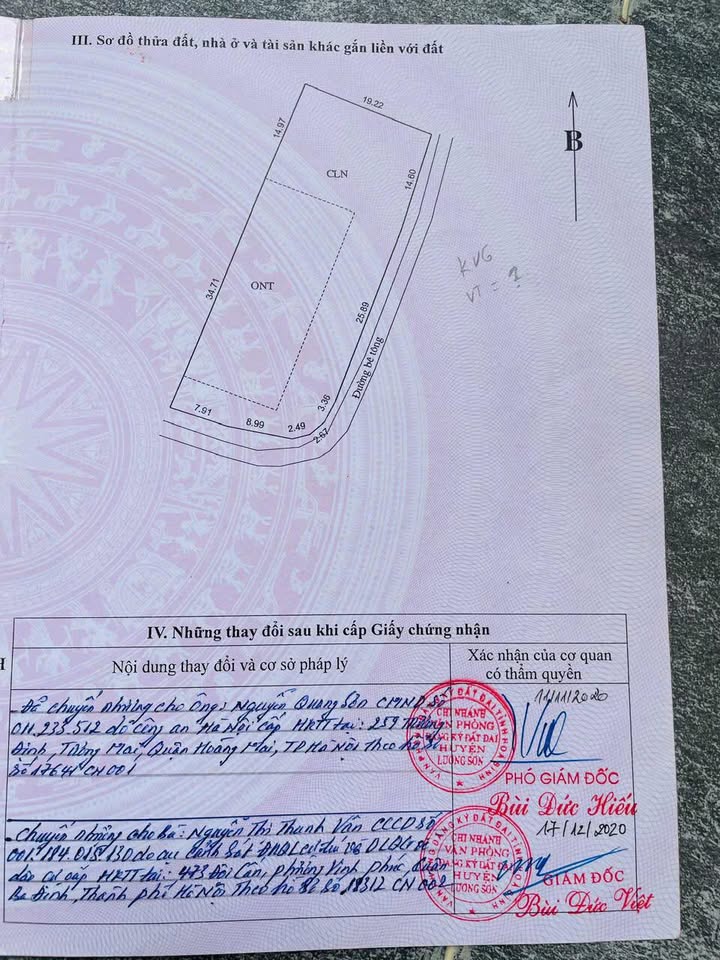 III. Sơ đồ thửa đất, nhà ở và tài sản khác gắn liền với đất
19.22
14.97
CLN
14.60
B
KVG
VT = ?
34.71
ONT
25.89
Đường bê tông
3.36
7.91
8.99
2.49
2.67
IV. Những thay đổi sau khi cấp Giấy chứng nhận
Nội dung thay đổi và cơ sở pháp lý
Xác nhận của cơ quan
có thẩm quyền
Đã chuyển nhượng cho Ông: Nguyễn Quang CMND số
011.233.512 do công an Hà Nội cấp HKTT tại: 259
Định, Tương Mai, Quận Hoàng Mai, TP Hà Nội theo hồ sơ
số CN 001
11/11/2020
CHI NHÁNH
VĂN PHÒNG
ĐĂNG KÝ ĐẤT ĐAI
HUYỆN
LƯƠNG SƠN
PHÓ GIÁM ĐỐC
Bùi Đức Hiếu
Chuyển nhượng cho Bà: Nguyễn Thị Thanh Vân CCCD số
001.184.015.130 do cục Cảnh sát
dân cư cấp HKTT tại: 473 Đội Cấn, phường Vĩnh Phúc, Quận
Ba Đình, Thành phố Hà Nội Theo hồ sơ số CN 002
17/12/2020
CHI NHÁNH
VĂN PHÒNG
ĐĂNG KÝ ĐẤT ĐAI
HUYỆN
LƯƠNG SƠN
GIÁM ĐỐC
Bùi Đức Việt